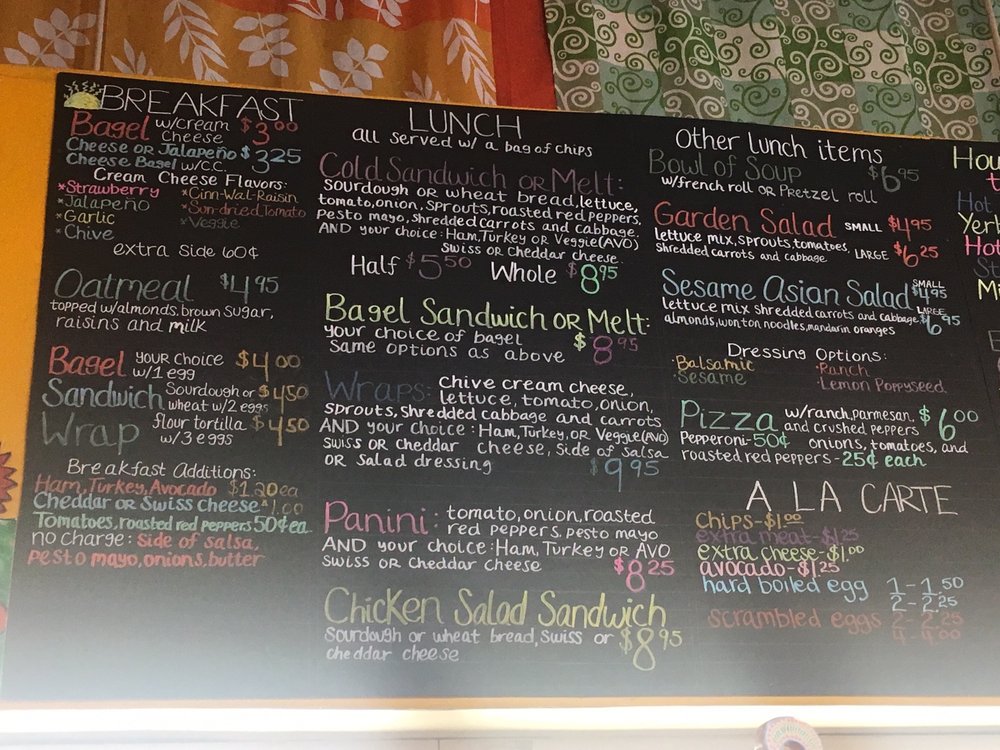 BREAKFAST
Bagel w/cream cheese $3.00
Cheese or Jalapeño $3.25
Cheese Bagel w/C.C.
Cream Cheese Flavors:
*Strawberry *Cinn-Wal-Raisin
*Jalapeño *Sun-dried Tomato
*Garlic *Veggie
*Chive
extra side 60¢
Oatmeal $4.95
topped w/almonds, brown sugar,
raisins and milk
Bagel your choice w/1 egg $4.00
Sandwich Sourdough or wheat w/2 eggs $4.50
Wrap flour tortilla w/3 eggs $4.50
Breakfast Additions:
Ham, Turkey, Avocado $1.20 ea
Cheddar or Swiss cheese $1.00
Tomatoes, roasted red peppers 50¢ ea
no charge: side of salsa,
pesto mayo, onions, butter
LUNCH
all served w/ a bag of chips
Cold Sandwich or Melt:
sourdough or wheat bread, lettuce,
tomato, onion, sprouts, roasted red peppers,
pesto mayo, shredded carrots and cabbage.
AND your choice: Ham, Turkey or Veggie (AVO)
Swiss or Cheddar cheese.
Half $5.50 Whole $8.95
Bagel Sandwich or Melt:
your choice of bagel
same options as above $8.95
Wraps: chive cream cheese,
lettuce, tomato, onion,
sprouts, shredded cabbage and carrots
AND your choice: Ham, Turkey, or Veggie (AVO)
Swiss or cheddar cheese, side of salsa
or salad dressing $9.95
Panini: tomato, onion, roasted
red peppers, pesto mayo
AND your choice: Ham, Turkey or AVO
Swiss or Cheddar cheese $8.25
Chicken Salad Sandwich
sourdough or wheat bread, swiss or $8.95
cheddar cheese
Other lunch items
Bowl of Soup $6.95
w/french roll or Pretzel roll
Garden Salad SMALL $4.95
lettuce mix, sprouts, tomatoes, LARGE $6.25
shredded carrots and cabbage
Sesame Asian Salad SMALL $4.95
lettuce mix shredded carrots and cabbage, LARGE $6.95
almonds, wonton noodles, mandarin oranges
Dressing Options:
·Balsamic ·Ranch
·Sesame ·Lemon Poppyseed
Pizza w/ranch, parmesan, and crushed peppers $6.00
Pepperoni-50¢ onions, tomatoes, and
roasted red peppers-25¢ each
A LA CARTE
Chips-$1.00
extra meat-$1.25
extra cheese-$1.00
avocado-$1.25
hard boiled egg 1-1.50
2-2.25
scrambled eggs 2-2.25
4-4.00
Hou
Hot
Yerb
Hot